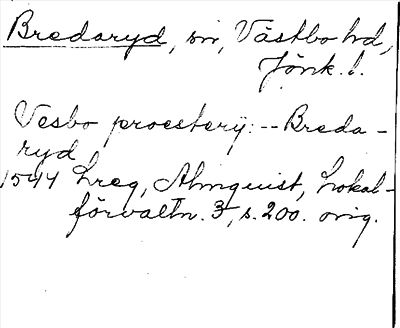 Bredaryd, sn, Västbo hd,
Jönk. l.
Vesbo proesterij: -- Breda-
ryd
1544 Lreg, Almquist, Lokal-
förvaltn. 3, s. 200. orig.